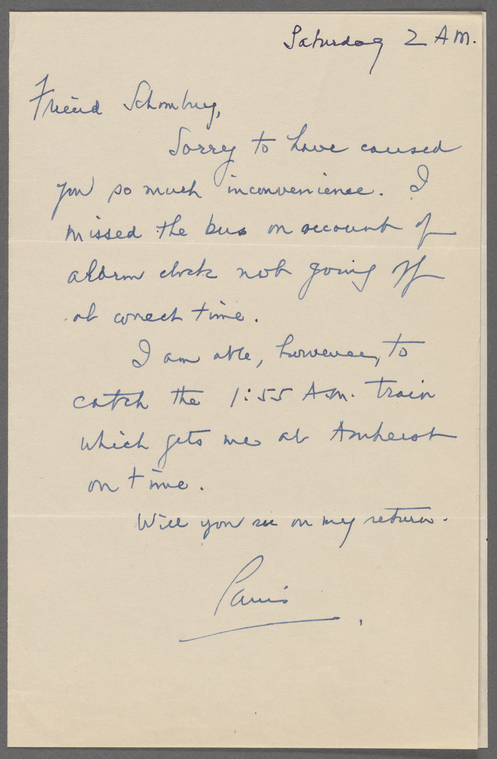 Saturday 2 A.M.
Friend Schomburg,
Sorry to have caused
you so much inconvenience. I
missed the bus on account of
alarm clock not going off
at correct time.
I am able, however, to
catch the 1:55 A.M. train
which gets me at Amherst
on time.
Will you see on my return.